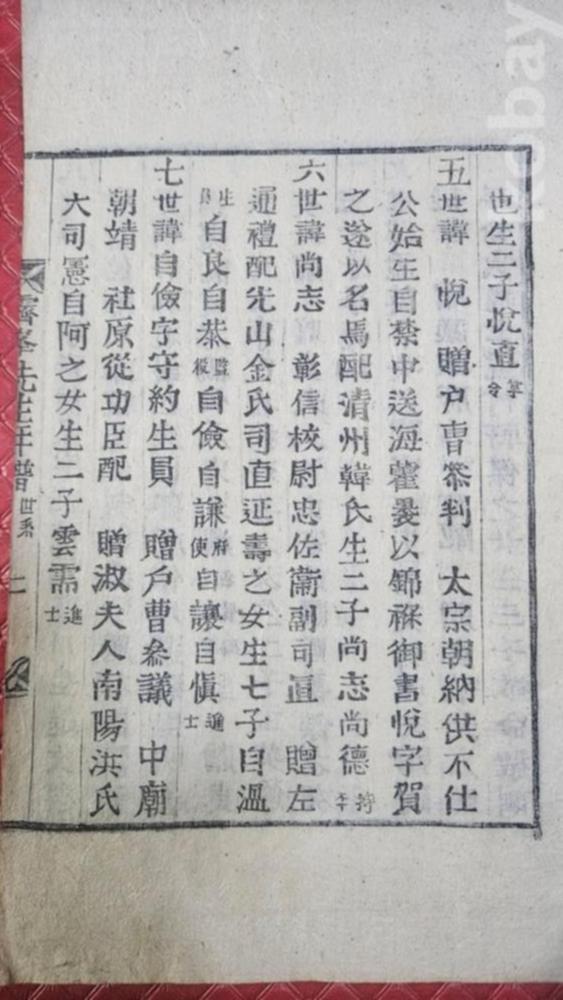 也生二子悅直掌令
五世諱 悅 贈户曺叅判 太宗朝納供不仕
公始生自禁中送海藿爰以錦褓御書悅字賀
之遂以名焉配清州韓氏生二子尚志尚德持平
六世諱尚志 彰信校尉忠佐衛副司直 贈左
通禮配光山金氏司直延壽之女生七子自溫
生員自良自恭監役自儉自謙府使自讓自愼進士
七世諱自儉字守約生員 贈户曹叅議 中廟
朝靖 社原從功臣配 贈淑夫人南陽洪氏
大司憲自阿之女生二子雲霈進士
霽峯先生年譜 世系 二
kobay